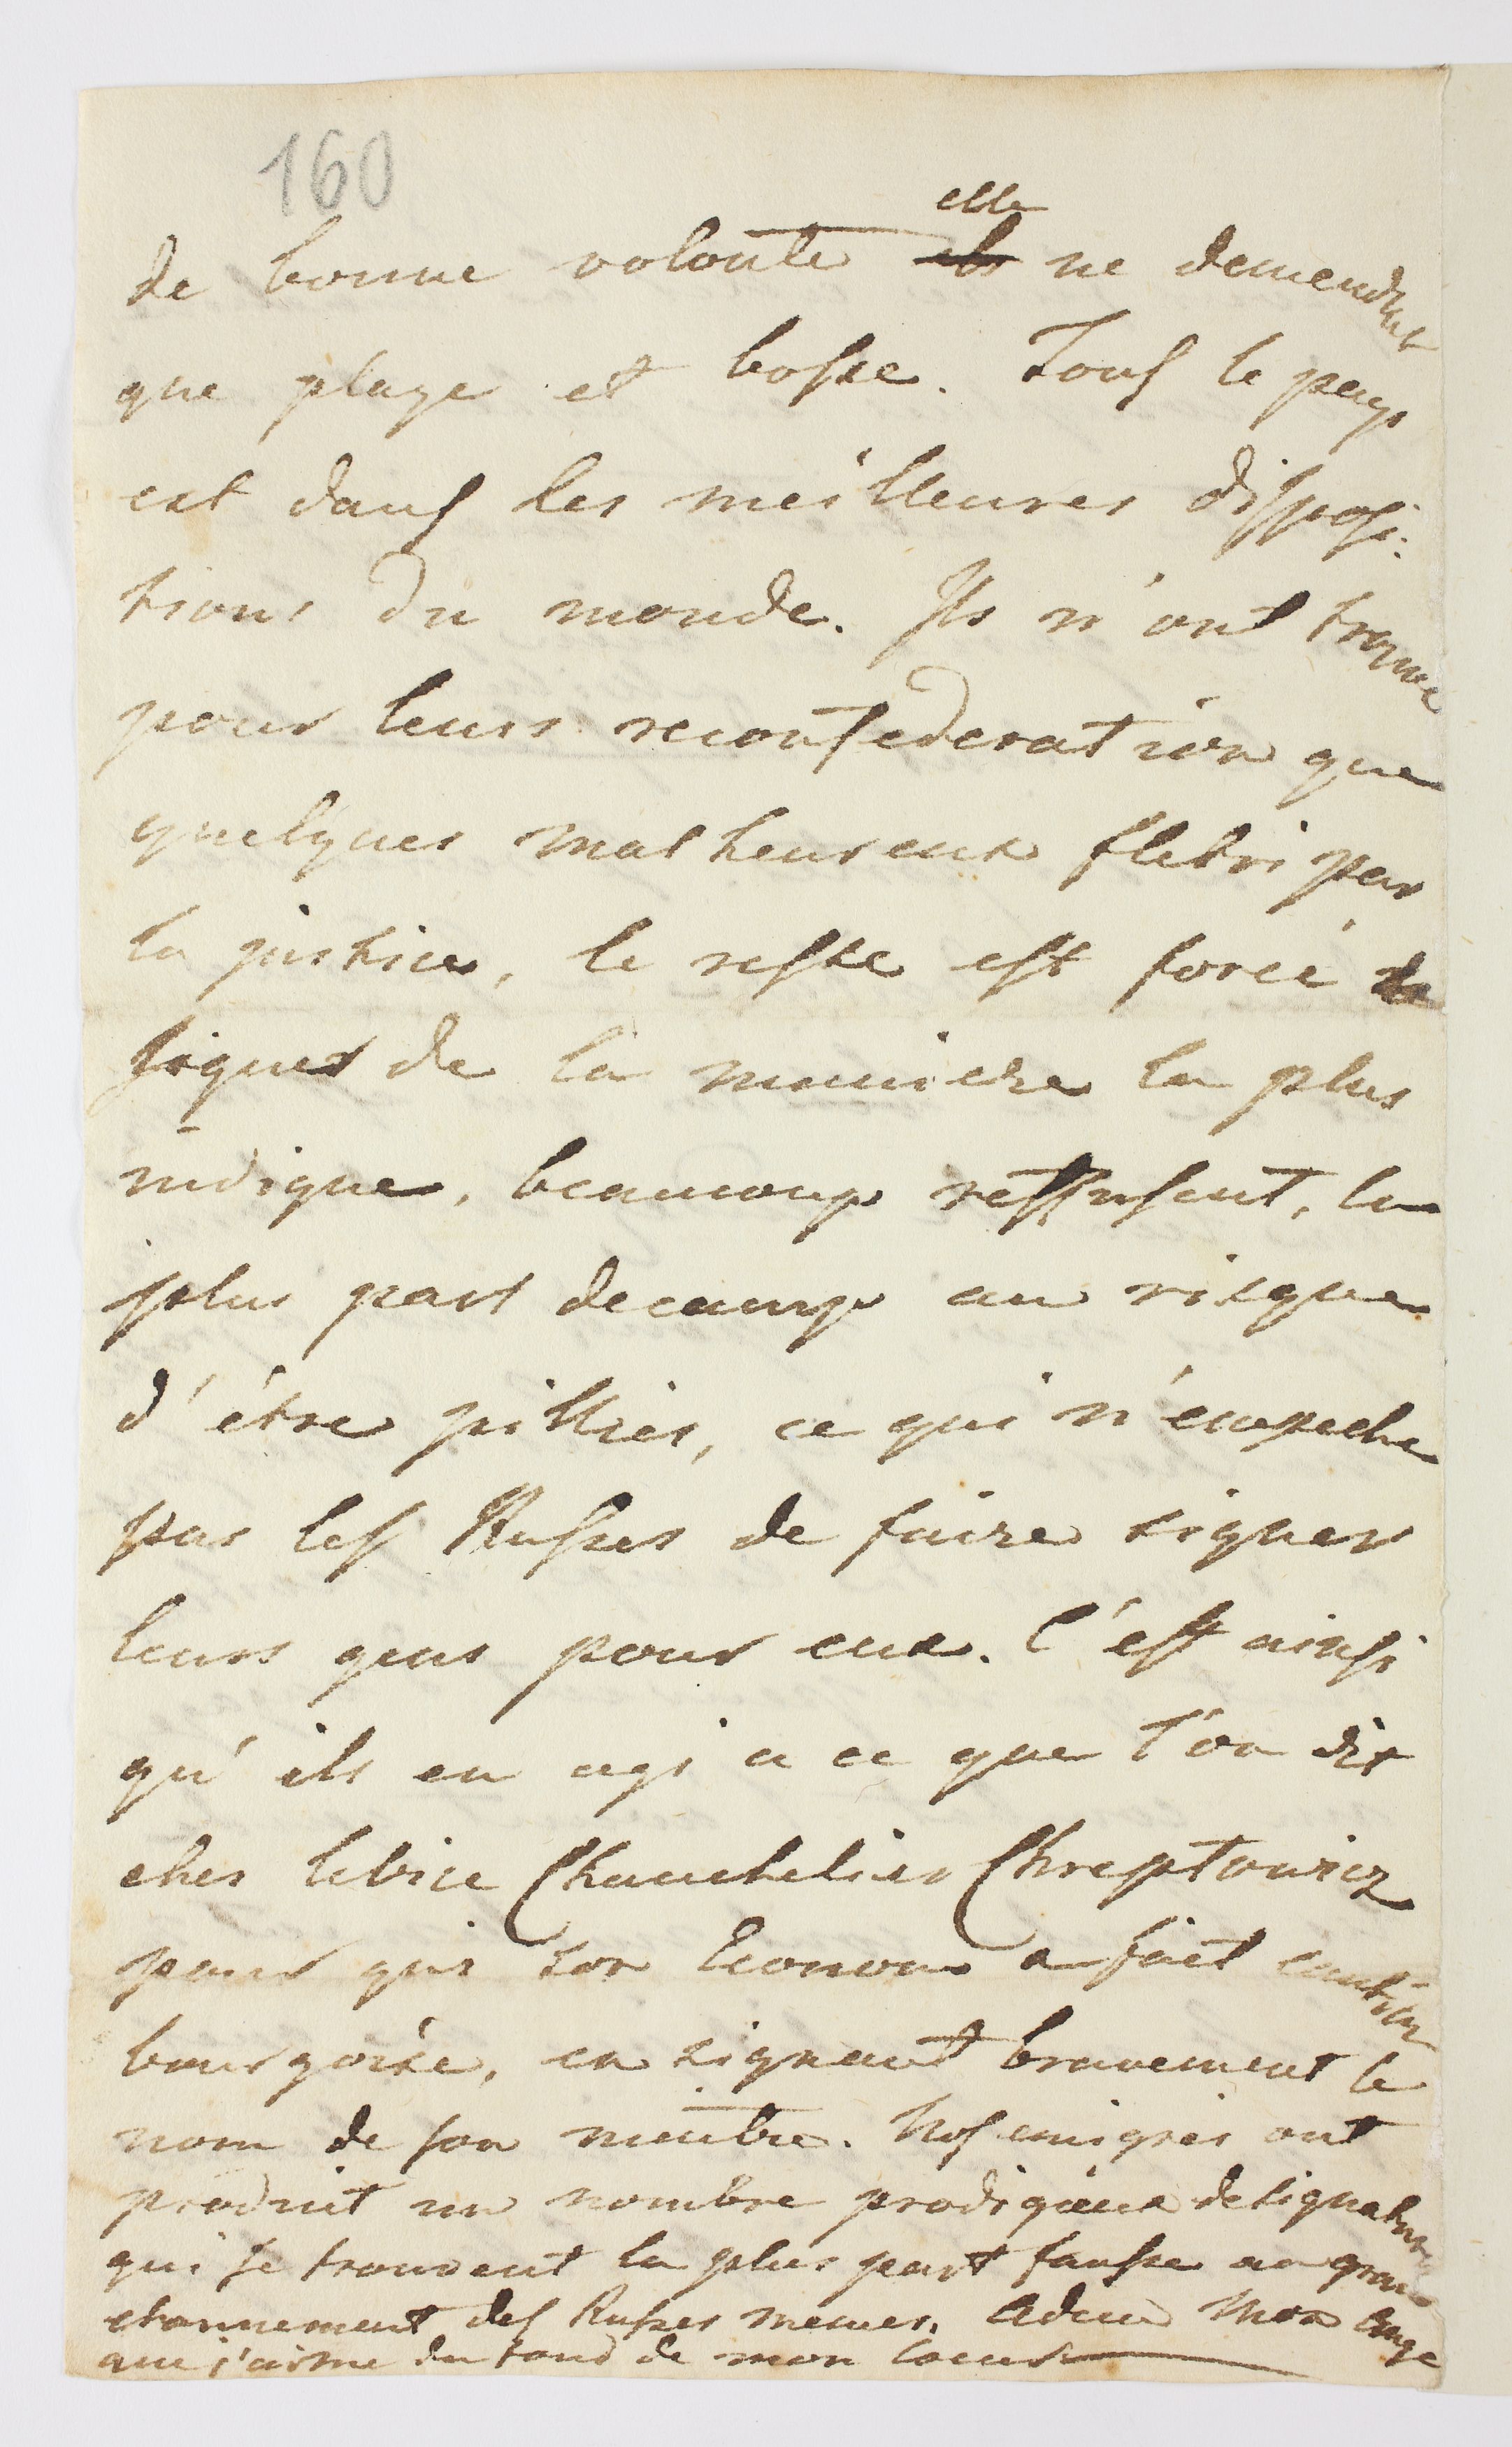 160
elle
de bonne volonte ils ne demendent
que plaze et bosse. Tous le pays
est dans les meilleures disposi-
tions du monde. Ils n'ont trouve
pour leurs reconfederation que
quelques malheureux fletri par
la justice, le reste est forcé de
signer de la maniere la plus
indigne, beaucoup reffusent, la
plus part decamp au risque
d'étre pilliés, ce qui n'empeche
pas les Russes de faire signer
leurs gens pour eux. C'est ainsi
qu'ils en agi a ce que l'on dit
ches levice Chanchelier Chreptowicz
pour qui son Econom a fait caution
bourgoise, en signant bravement le
nom de son maitre. Nos emigrés ont
produit un nombre prodigieux designatures
qui se trouvent la plus part fausse au grand
etonnement des Russes memes. Adieu mon Ange
que j'aime du fond de mon Coeur